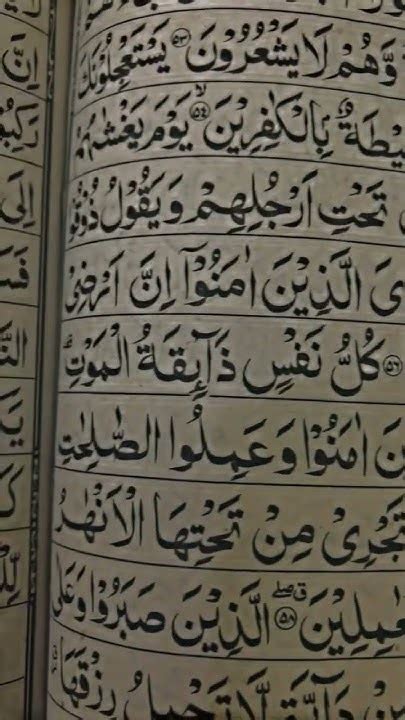 وَّهُمْ لَا يَشْعُرُوْنَ ۝٥٣ يَسْتَعْجِلُوْنَكَ
يْطَةٌۢ بِالْكٰفِرِيْنَ ۝٥٤ۙ يَوْمَ يَغْشٰىهُمُ
تَحْتِ اَرْجُلِهِمْ وَيَقُوْلُ ذُوْقُوْا
ىَ الَّذِيْنَ اٰمَنُوْٓا اِنَّ اَرْضِيْ
۝٥٦ كُلُّ نَفْسٍ ذَآئِقَةُ الْمَوْتِ
نَ اٰمَنُوْا وَعَمِلُوا الصّٰلِحٰتِ
تَجْرِيْ مِنْ تَحْتِهَا الْاَنْهٰرُ
عٰمِلِيْنَ ۝٥٨ الَّذِيْنَ صَبَرُوْا وَعَلٰى
مِنْ دَآبَّةٍ لَّا تَحْمِلُ رِزْقَهَا
اِنَّ
اِلَى